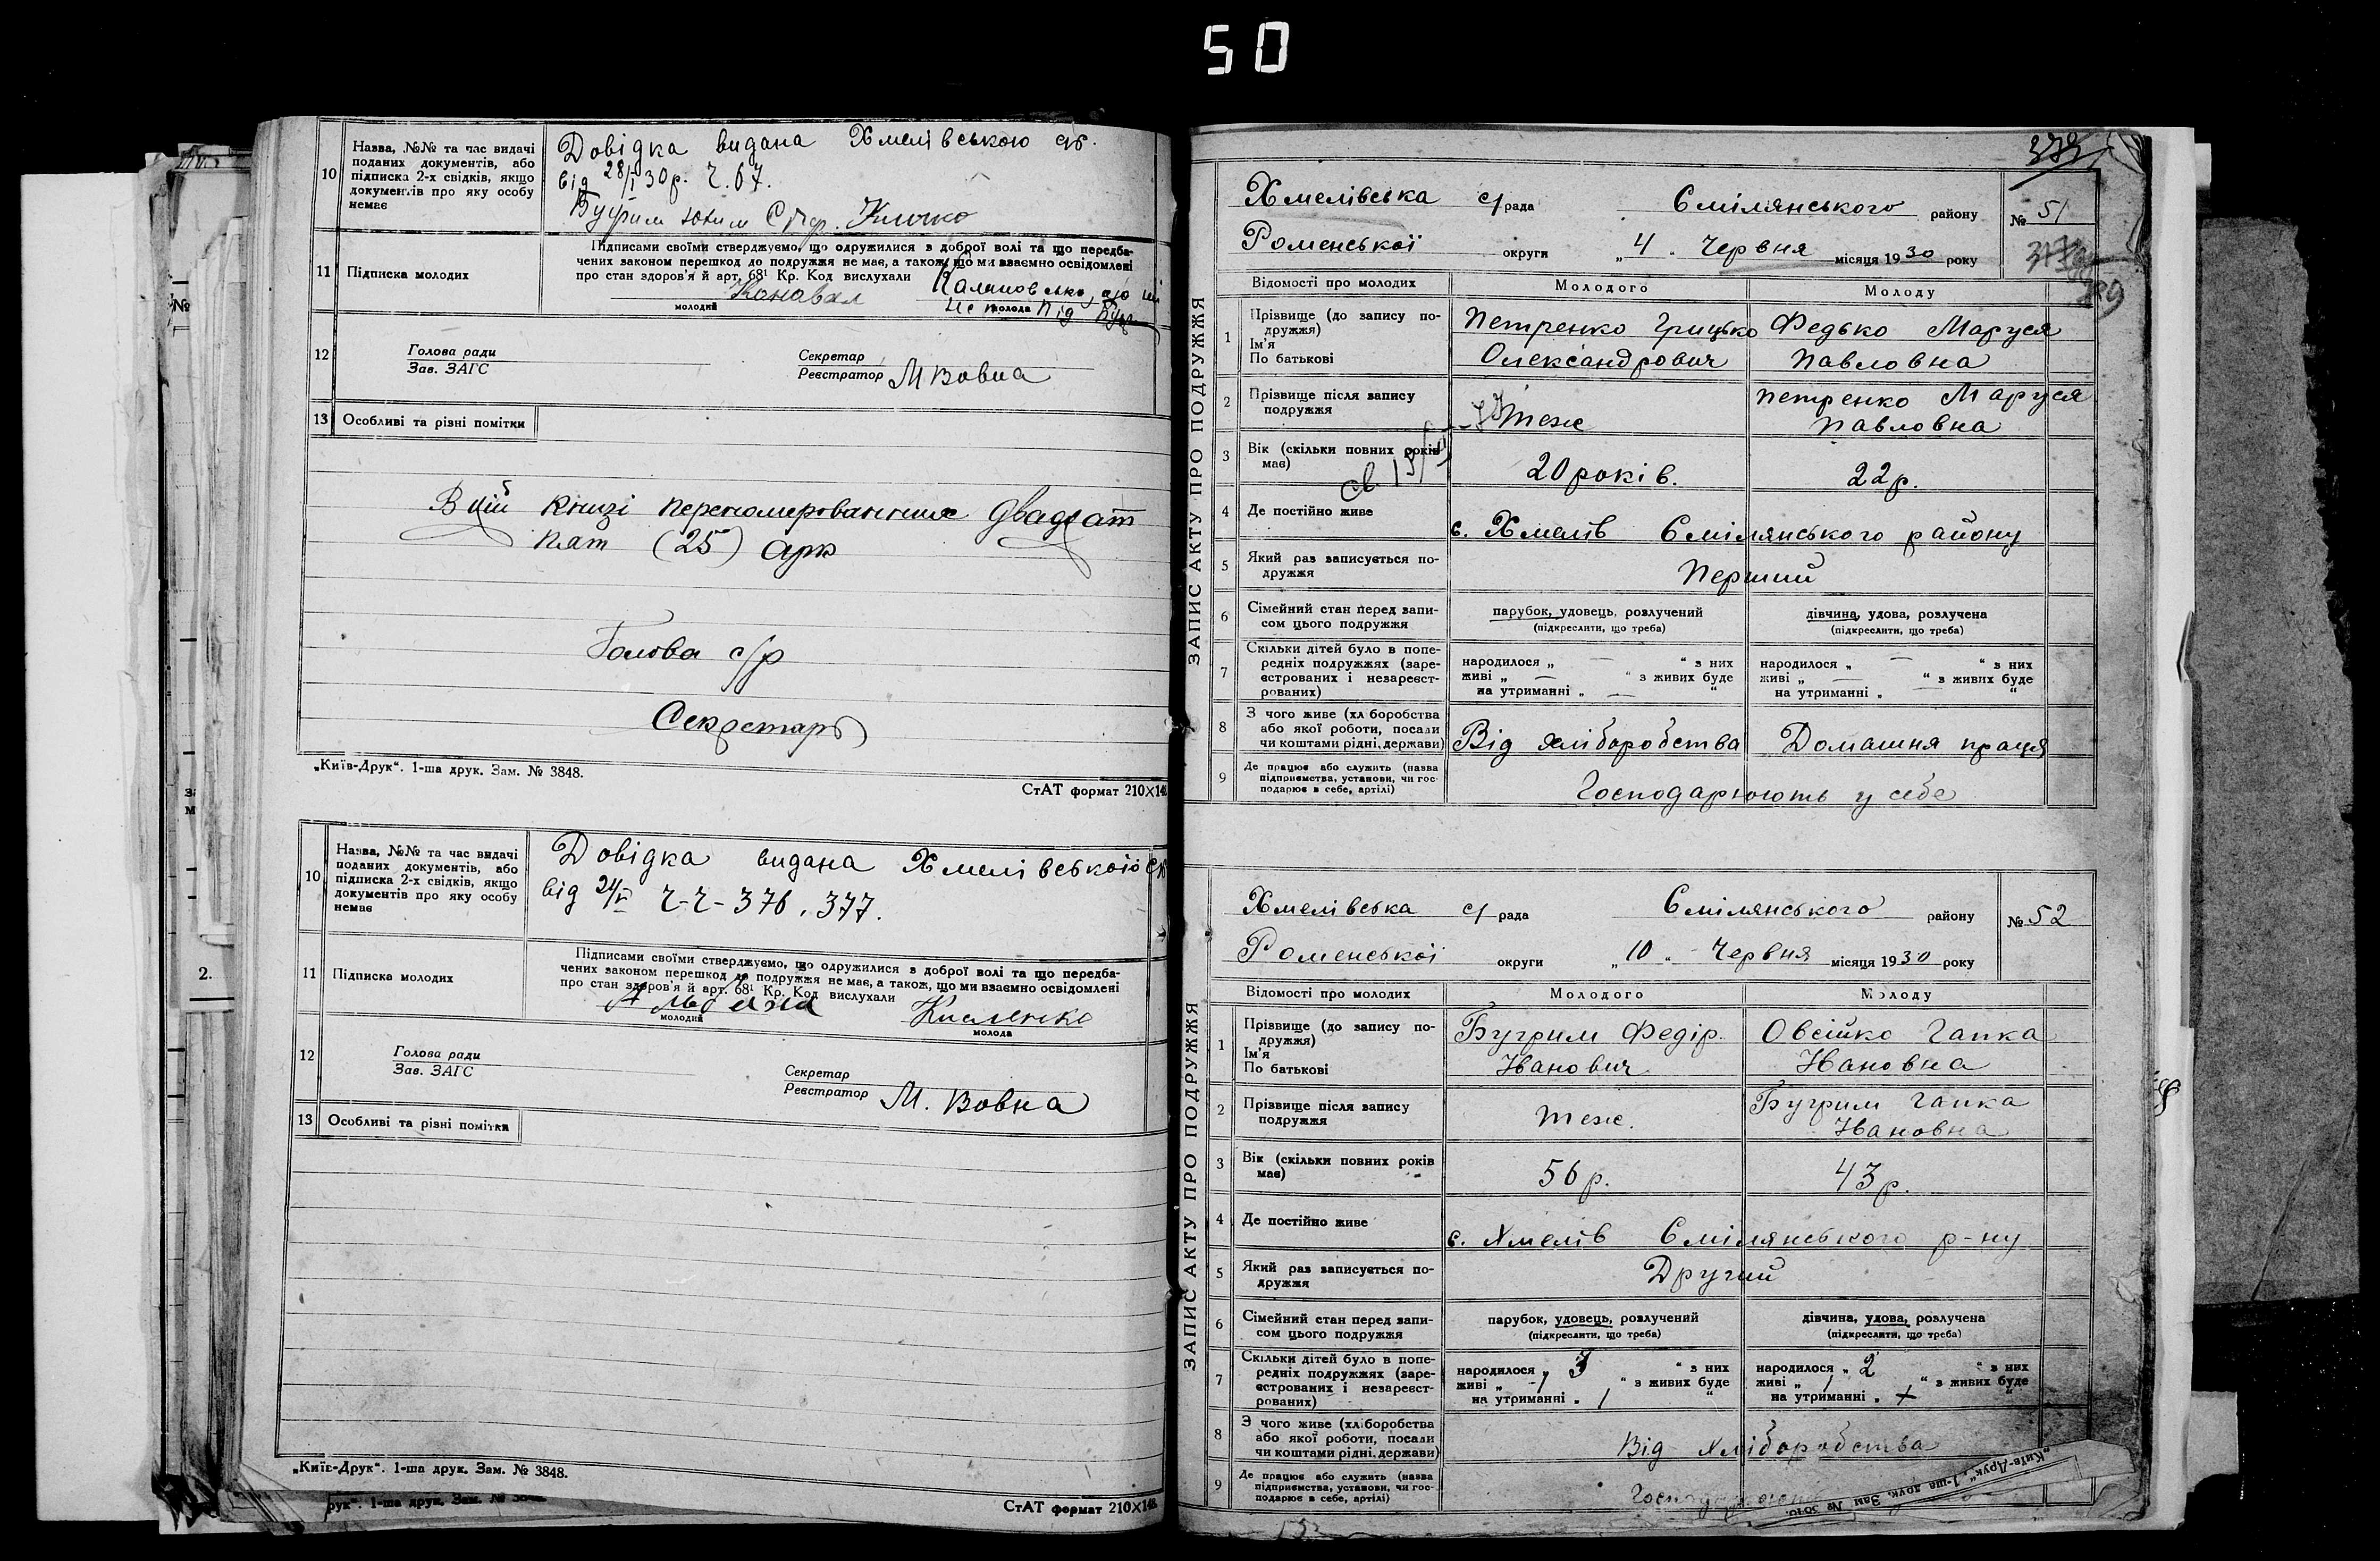 50
10
Назва, №№ та час видачі
поданих документів, або
підписка 2-х свідків, якщо
документів про яку особу
немає
Довідка видана Хмелівською с/б.
від 28/I 30р. Ч. 67.
11
Підписка молодих
Підписами своїми стверджуємо, що одружилися в доброї волі та що передба-
чених законом перешкод до подружжя не має, а також, що ми взаємно освідомлені
про стан здоров'я й арт. 68¹ Кр. Код вислухали
Коновал
молодий
молода
12
Голова ради
Зав. ЗАГС
Секретар
Реєстратор М Вовна
13 Особливі та різні помітки
В цій книзі перенумерованних двадцат
пят (25) арк
Голова с/р
Секретарь
„Київ-Друк“. 1-ша друк. Зам. № 3848.
СтАТ формат 210×148
10
Назва, №№ та час видачі
поданих документів, або
підписка 2-х свідків, якщо
документів про яку особу
немає
Довідка видана Хмелівською
від 24/V Ч-Ч-376, 377.
11
Підписка молодих
Підписами своїми стверджуємо, що одружилися в доброї волі та що передба-
чених законом перешкод до подружжя не має, а також, що ми взаємно освідомлені
про стан здоров'я й арт. 68¹ Кр. Код вислухали
молодий
Кисленко
молода
12
Голова ради
Зав. ЗАГС
Секретар
Реєстратор М. Вовна
13 Особливі та різні помітки
„Київ-Друк“. 1-ша друк. Зам. № 3848.
СтАТ формат 210×148
рук“. 1-ша друк. Зам. №
№
2.
379
ЗАПИС АКТУ ПРО ПОДРУЖЖЯ
Хмелівська с/рада Смілянського району № 51
Роменської округи „4“ Червня місяця 1930 року
Відомості про молодих
Молодого
Молоду
1
Прізвище (до запису по-
дружжя)
Ім'я
По батькові
Петренко Грицько
Олександрович
Федько Маруся
Павловна
2
Прізвище після запису
подружжя
теж
Петренко Маруся
Павловна
3
Вік (скільки повних років
має)
20 років.
22 р.
4
Де постійно живе
с. Хмелів Смілянського району
5
Який раз записується по-
дружжя
Перший
6
Сімейний стан перед запи-
сом цього подружжя
парубок, удовець, розлучений
(підкреслити, що треба)
дівчина, удова, розлучена
(підкреслити, що треба)
7
Скільки дітей було в попе-
редніх подружжях (заре-
естрованих і незареєст-
рованих)
народилося „ — “ з них
живі „ — “ з живих буде
на утриманні „ — “
народилося „ — “ з них
живі „ — “ з живих буде
на утриманні „ — “
8
З чого живе (хліборобства
або якої роботи, посади
чи коштами рідні, держави)
Від хліборобства
Домашня праця
9
Де працює або служить (назва
підприємства, установи, чи гос-
подарює в себе, артілі)
Господарюють у себе
ЗАПИС АКТУ ПРО ПОДРУЖЖЯ
Хмелівська с/рада Смілянського району № 52
Роменської округи „10“ Червня місяця 1930 року
Відомості про молодих
Молодого
Молоду
1
Прізвище (до запису по-
дружжя)
Ім'я
По батькові
Бугрим Федір
Іванович
Овсійко Гапка
Івановна
2
Прізвище після запису
подружжя
теж.
Бугрим Гапка
Івановна
3
Вік (скільки повних років
має)
56 р.
43 р.
4
Де постійно живе
с. Хмелів Смілянського р-ну
5
Який раз записується по-
дружжя
Другий
6
Сімейний стан перед запи-
сом цього подружжя
парубок, удовець, розлучений
(підкреслити, що треба)
дівчина, удова, розлучена
(підкреслити, що треба)
7
Скільки дітей було в попе-
редніх подружжях (заре-
естрованих і незареєст-
рованих)
народилося „ 3 “ з них
живі „ 1 “ з живих буде
на утриманні „ 1 “
народилося „ 2 “ з них
живі „ 1 “ з живих буде
на утриманні „ + “
8
З чого живе (хліборобства
або якої роботи, посади
чи коштами рідні, держави)
Від хліборобства
9
Де працює або служить (назва
підприємства, установи, чи гос-
подарює в себе, артілі)
„Київ-Друк“. 1-ша друк. Зам. №